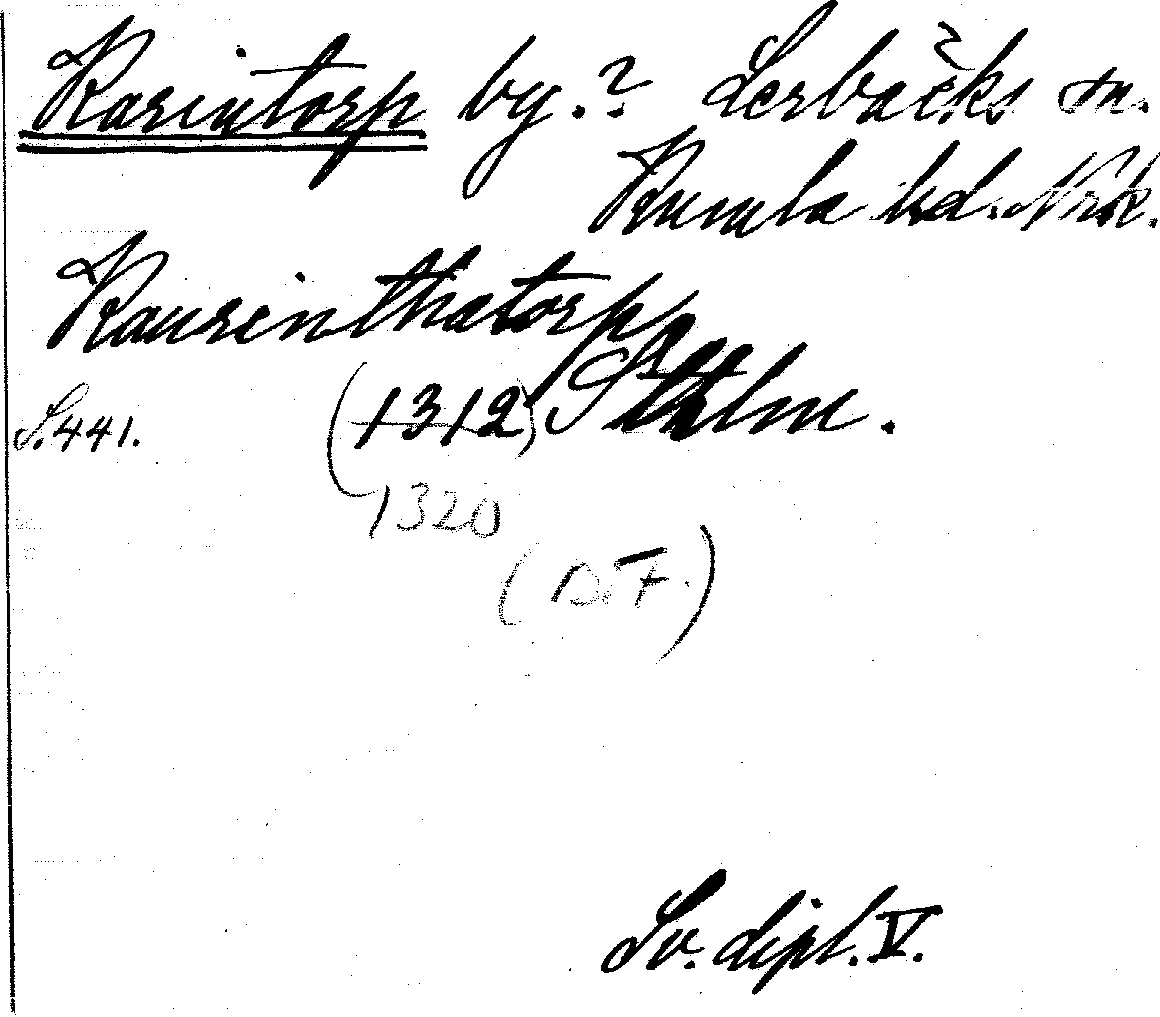 Rasintorp by.? Lerbäcks sn.
Kumla hd. Nrk.
Rausinthatorpp
S. 441. (1312) Sthlm.
1320
(D.F.)
Sv. dipl. V.